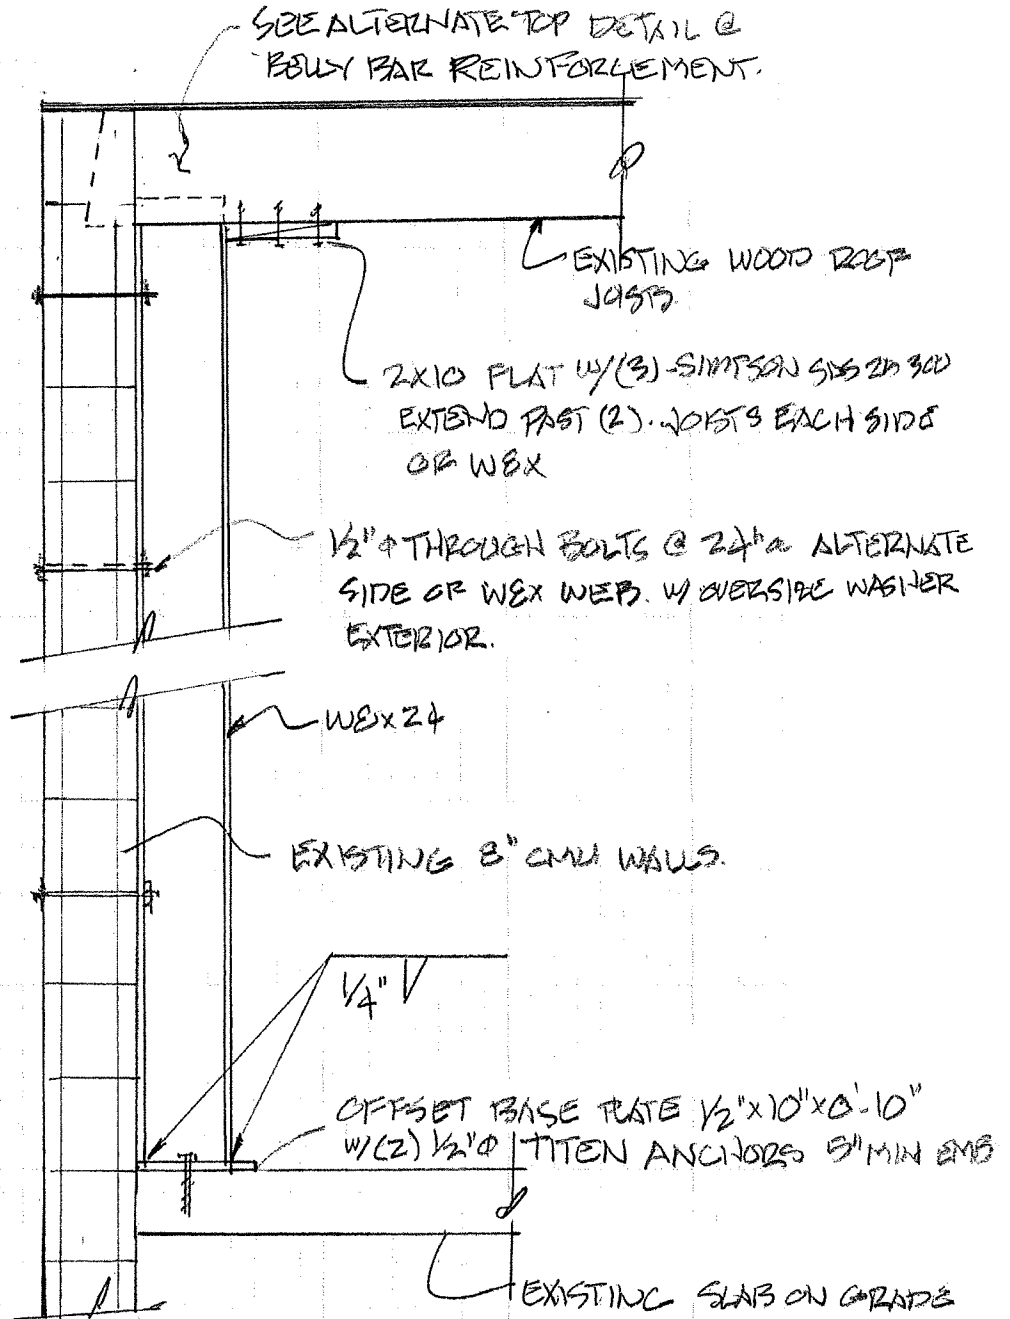 SEE ALTERNATE TOP DETAIL @
BELLY BAR REINFORCEMENT.
EXISTING WOOD ROOF
JOISTS
2X10 FLAT W/(3)-SIMPSON SDS 25 300
EXTEND PAST (2) JOISTS EACH SIDE
OF W8X
1/2"φ THROUGH BOLTS @ 24" ALTERNATE
SIDE OF W8X WEB. W/ OVERSIZE WASHER
EXTERIOR.
W8x24
EXISTING 8" CMU WALLS.
1/4"
OFFSET BASE PLATE 1/2"x10"x0'-10"
W/(2) 1/2"φ TITEN ANCHORS 5" MIN EMB
EXISTING SLAB ON GRADE